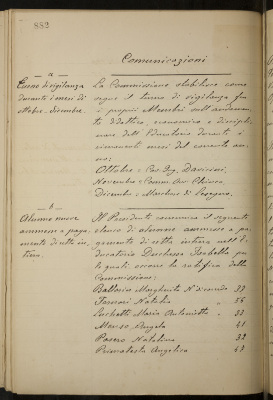 882
Comunicazioni
a
Turno di vigilanza
durante i mesi di
Ottobre - dicembre.
La Commissione stabilisce come
segue il turno di vigilanza fra
i proprii Membri sull'andamen
to didattico, economico e discipli
nare dell'Educatorio durante i
rimanenti mesi del corrente an
no:
Ottobre - Cav. Ing.
Novembre - Comm. Avv.
Dicembre - Marchese di
b
Alunne nuove
ammesse a paga
mento di retta in
tera.
Il Presidente comunica il seguente
elenco di alunne ammesse a pa
gamento di retta intera nell'E
ducatorio Duchessa Isabella per
le quali occorre la ratifica della
Commissione:
Margherita N. di 39
Natalia " 56
Maria Antonietta " 33
Angela 41
Natalina 32
Angelica 43